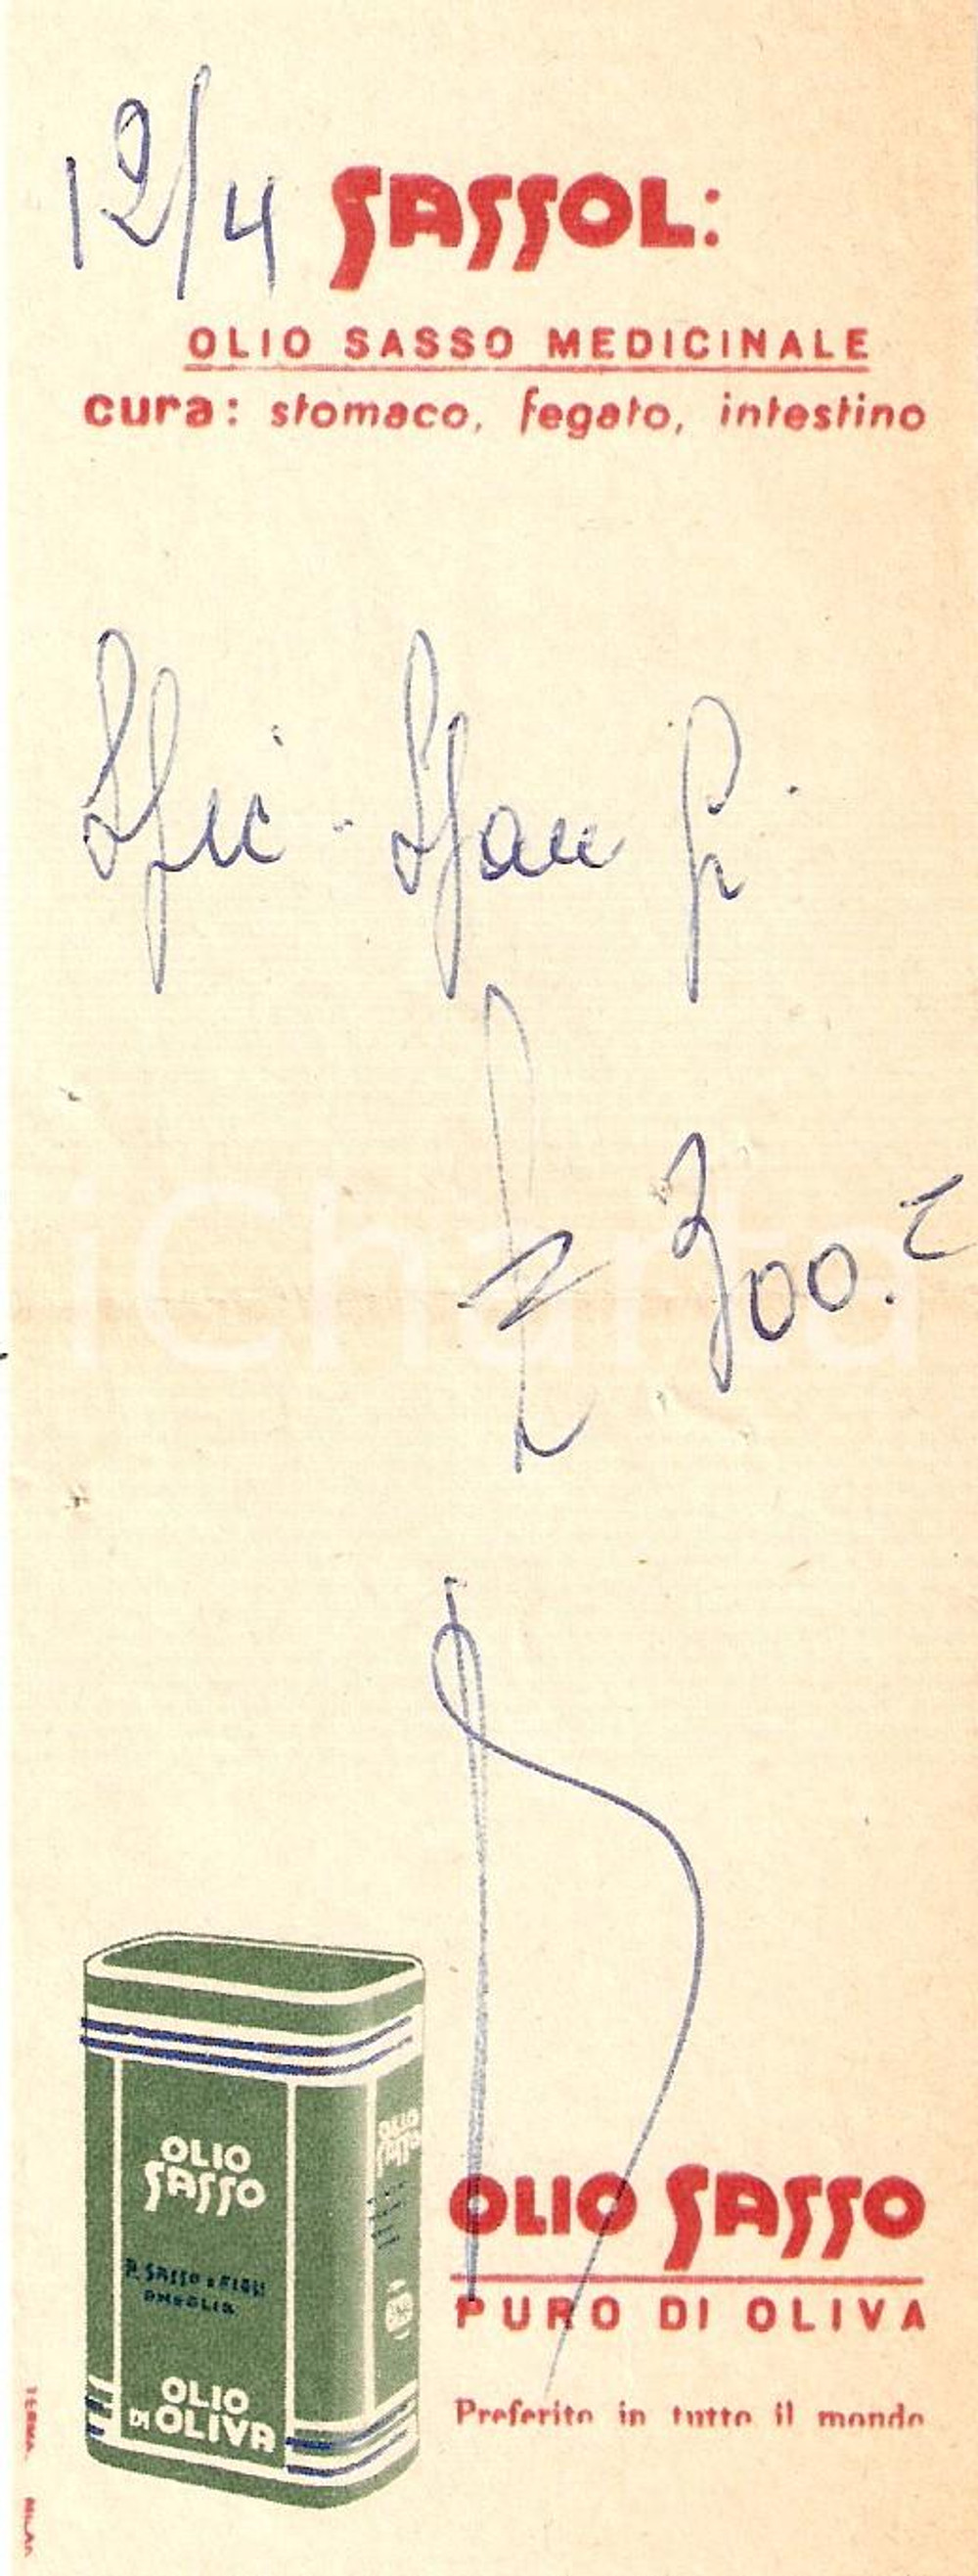 12/4 SASSOL:
OLIO SASSO MEDICINALE
cura: stomaco, fegato, intestino
Spic - Span
iCharta
£ 300.=
OLIO
SASSO
OLIO
SASSO
P. SASSO e FIGLI
ONEGLIA
OLIO
DI OLIVA
OLIO SASSO
PURO DI OLIVA
Preferito in tutto il mondo